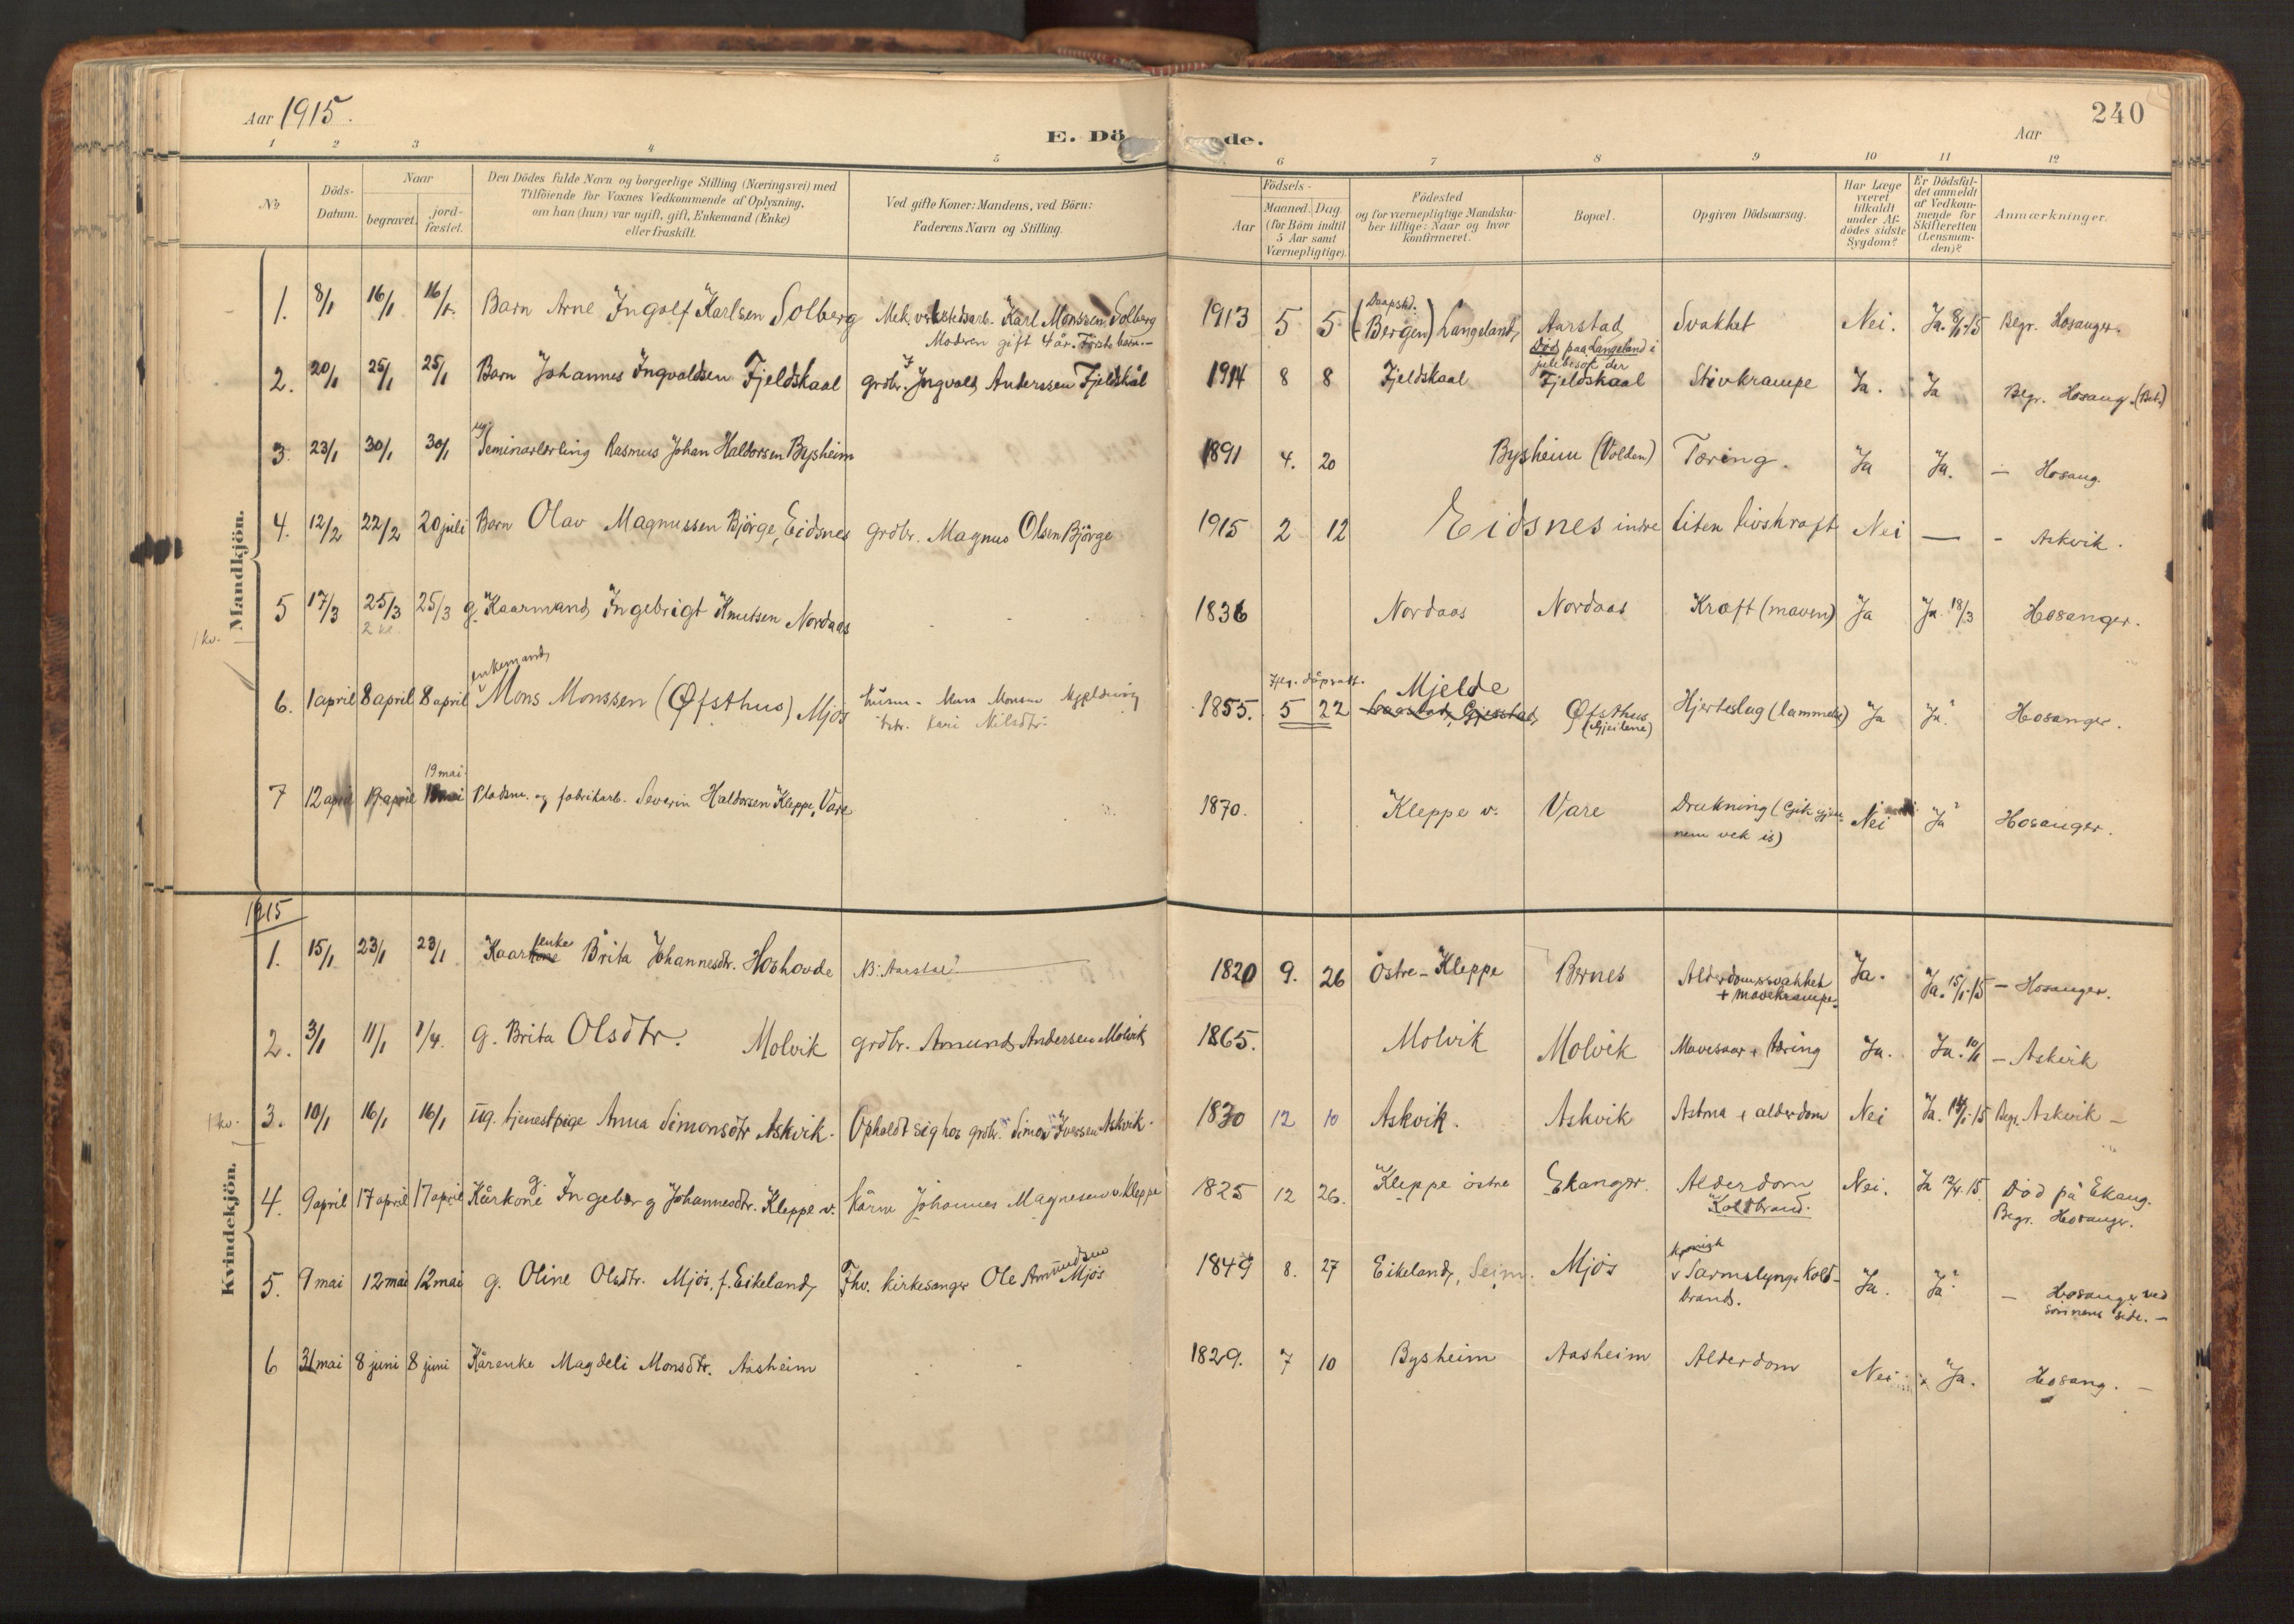 Aar 1915.
E. Dö de.
Aar
240
1 2 3 4 5 6 7 8 9 10 11 12
No
Döds-Datum.
Naar
begravet.
jord-fæstet.
Den Dödes fulde Navn og borgerlige Stilling (Næringsvei) med
Tilföiende for Voxnes Vedkommende af Oplysning,
om han (hun) var ugift, gift, Enkemand (Enke)
eller fraskilt.
Ved gifte Koner: Mandens, ved Börn:
Faderens Navn og Stilling.
Födsels-
Aar
Maaned. Dag.
(for Börn indtil
5 Aar samt
Værnepligtige).
Födested
og for værnepligtige Mandska-
ber tillige: Naar og hvor
konfirmeret.
Bopæl.
Opgiven Dödsaarsag.
Har Læge
været
tilkaldt
under Af-
dödes sidste
Sygdom?
Er Dödsfal-
det anmeldt
af Vedkom-
mende for
Skifteretten
(Lensman-
den)?
Anmærkninger.
Mandkjön.
1. 8/1 16/1 16/1. Barn Arne Ingolf Karlsen Solberg Mek. verkstedsarb. Karl Monssen Solberg 1913 5 5 (Bergen) Langeland Aarstad Svakhet Nei. Ja. 8/1-15 Begr. Hosanger.
Moderen gift 4 år. Første barn.-
Daapsted.
Død paa Langeland i
julebesøk der
2. 20/1 25/1 25/1 Barn Johannes Ingvaldsen Fjeldskaal grdbr. Ingvald Anderssen Fjeldskål 1914 8 8 Fjeldskaal Fjeldskaal Stivkrampe Ja. Ja Begr. Hosang.
3. 23/1 30/1 30/1 ug. Seminarlerling Rasmus Johan Haldorsen Bysheim 1891 4. 20 Bysheim (Volden) Tæring. Ja Ja. - Hosang.
4. 12/2 22/2 20 juli Barn Olav Magnussen Bjørge, Eidsnes grdbr. Magnus Olsen Bjørge 1915 2 12 Eidsnes indre liten livskraft Nei — - Askvik.
1 kv.
5 17/3 25/3 25/3 g. Kaarmand Ingebrigt Knutsen Nordaas 1836 Nordaas Nordaas Kræft (maven) Ja Ja. 18/3 Hosanger.
2 kl.
enkemand
6. 1 april 8 april 8 april Mons Monssen (Øfsthus) Mjøs husm. Mons Monsen 1855. 5 22 Mjelde Øfsthus Hjerteslag (lammelse) Ja Ja. Hosanger.
Kari Nilsdtr.
(Gjeilene)
19 mai
7 12 april 19 april Pladsm. og fabrikarb. Severin Haldorsen Kleppe, Vare 1870. Kleppe v. Vare Drukning (Gik gjen-
nem vek is) Nei Ja Hosanger.
1915
Kvindekjön.
1. 15/1 23/1 23/1 Kaarkone enke Brita Johannesdtr. Hoshovde 1820 9. 26 Østre-Kleppe Bernes Alderdomssvakhet
+ mavekrampe. Ja. Ja. 15/1-15 - Hosanger.
2. 3/1 11/1 1/4. g. Brita Olsdtr. Molvik grdbr. Amund Andersen Molvik 1865. Molvik Molvik Mavesaar + tæring Ja. Ja. 10/1 - Askvik
1 kv.
3. 10/1 16/1 16/1 ug. tjenestpige Anna Simonsdtr Askvik. Opholdt sig hos grdbr. Simon Iverssen Askvik. 1830 12 10 Askvik. Askvik Astma + alderdom Nei Ja. 14/1-15 Begr. Askvik -
4. 9 april 17 april 17 april g. Kårkone Ingeberg Johannesdtr. Kleppe v. kårm Johannes Magnesen v. Kleppe 1825 12 26. Kleppe østre Ekanger. Alderdom
Koldbrand. Nei. Ja 12/4.15. Død på Ekang.
Begr. Hosanger.
5. 9 mai 12 mai 12 mai g. Oline Olsdtr. Mjøs, f. Eikeland Fhv. kirkesanger Ole Amundsen Mjøs 1849 8. 27 Eikeland, Seim. Mjøs kronisk
Tarmslyng, Kold-
brand. Ja. Ja. - Hosanger ved
sønnens side. -
6 31 mai 8 juni 8 juni Kårenke Magdeli Monsdtr. Aasheim 1829. 7 10 Bysheim Aasheim Alderdom Nei Ja. Hosang. -